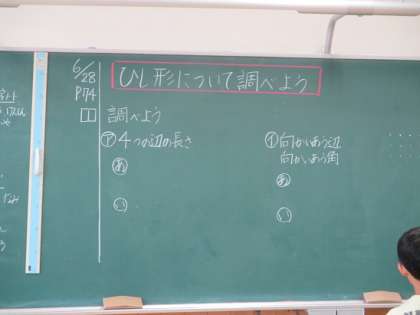 6/28
P74
ひし形について調べよう
1
調べよう
㋐4つの辺の長さ
あ
い
㋑向かいあう辺
向かいあう角
あ
い